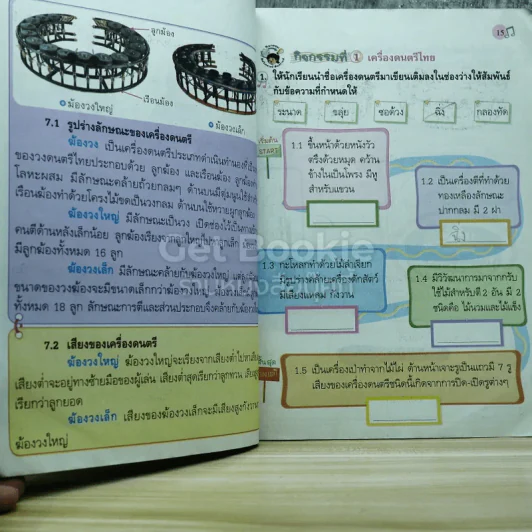 ลูกฆ้อง
เรือนฆ้อง
ฆ้องวงใหญ่
ฆ้องวงเล็ก
7.1 รูปร่างลักษณะของเครื่องดนตรี
ฆ้องวง เป็นเครื่องดนตรีประเภทดำเนินทำนองที่
ของวงดนตรีไทยประกอบด้วย ลูกฆ้อง และเรือนฆ้อง ลูกฆ้อง
โลหะผสม มีลักษณะคล้ายถ้วยกลมๆ ด้านบนมีตุ่มนูน
เรือนฆ้องทำด้วยโครงไม้ขดเป็นวงกลม ด้านบนใช้หวายผูกลูกฆ้อง
ฆ้องวงใหญ่ มีลักษณะเป็นวง เปิดช่องไว้เป็นทาง
คนตีด้านหลังเล็กน้อย ลูกฆ้องเรียงจากลูกใหญ่ไปหาลูกเล็ก
มีลูกฆ้องทั้งหมด 16 ลูก
ฆ้องวงเล็ก มีลักษณะคล้ายกับฆ้องวงใหญ่ แต่
ขนาดของวงฆ้องจะมีขนาดเล็กกว่าฆ้องวงใหญ่ มีลูกฆ้อง
ทั้งหมด 18 ลูก ลักษณะการตีและส่วนประกอบจึงคล้ายกับฆ้อง
7.2 เสียงของเครื่องดนตรี
ฆ้องวงใหญ่ ฆ้องวงใหญ่จะเรียงจากเสียงต่ำไปหา
เสียงต่ำจะอยู่ทางซ้ายมือของผู้เล่น เสียงต่ำสุดเรียกว่าลูกทวน
เรียกว่าลูกยอด
ฆ้องวงเล็ก เสียงของฆ้องวงเล็กจะมีเสียงสูงกังวาน
ฆ้องวงใหญ่
15
กิจกรรมที่ 1 เครื่องดนตรีไทย
1. ให้นักเรียนนำชื่อเครื่องดนตรีมาเขียนเติมลงในช่องว่างให้สัมพันธ์
กับข้อความที่กำหนดให้
ระนาด ขลุ่ย ซอด้วง ฉิ่ง กลองทัด
เริ่มต้น
START
1.1 พื้นหน้าด้วยหนังวัว
ตรึงด้วยหมุด คว้าน
ข้างในเป็นโพรง มีหู
สำหรับแขวน
1.2 เป็นเครื่องตีที่ทำด้วย
ทองเหลืองลักษณะ
ปากกลม มี 2 ฝา
ฉิ่ง
1.3 กะโหลกทำด้วยไม้ลำเจียก
มีรูปร่างคล้ายเครื่องดักสัตว์
มีเสียงแหลม กังวาน
1.4 มีวิวัฒนาการมาจากกรับ
ใช้ไม้สำหรับตี 2 อัน มี 2
ชนิดคือ ไม้นวมและไม้แข็ง
1.5 เป็นเครื่องเป่าทำจากไม้ไผ่ ด้านหน้าเจาะรูเป็นแถวมี 7 รู
เสียงของเครื่องดนตรีชนิดนี้เกิดจากการปิด-เปิดรูต่างๆ
Get Bookie